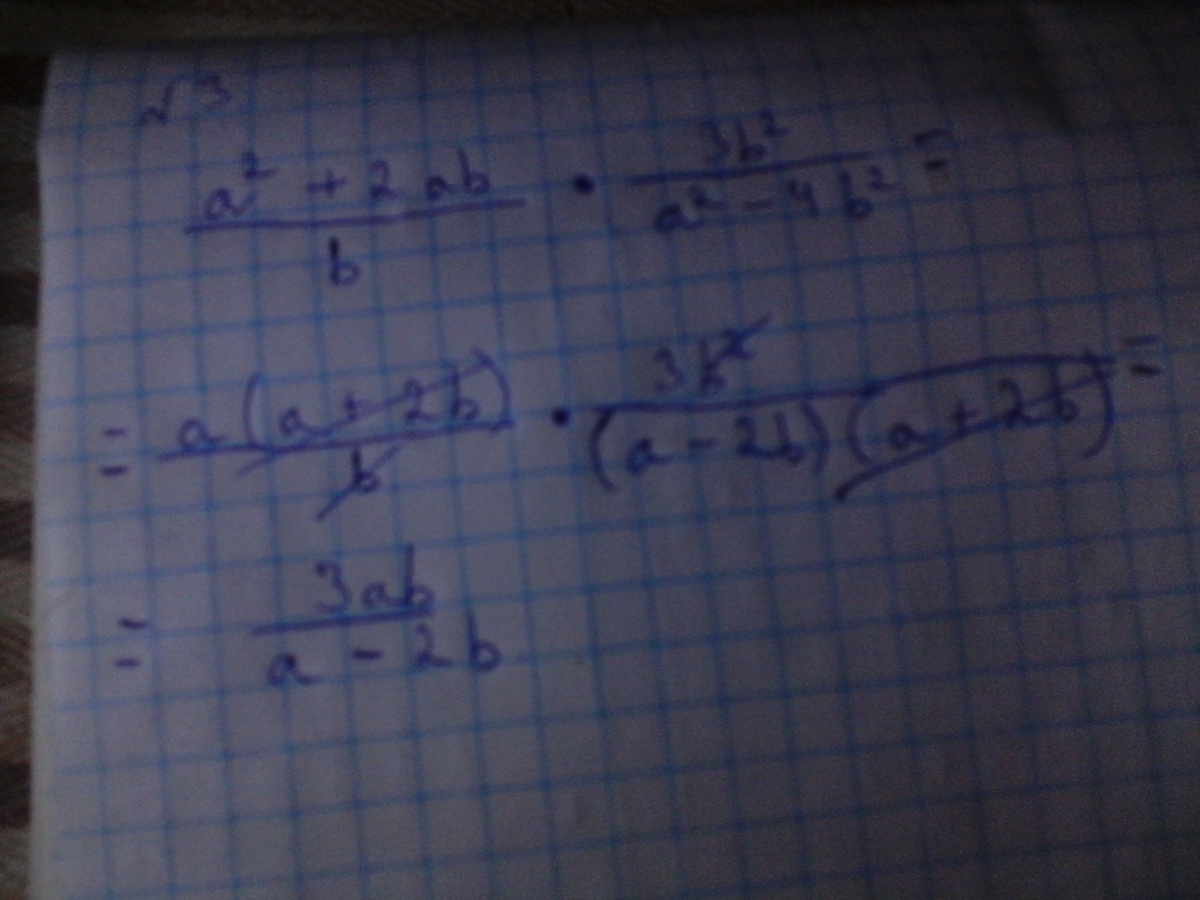 №3
(a² + 2ab)/b · 3b²/(a² - 4b²) =
= a(a + 2b)/b · 3b²/((a - 2b)(a + 2b)) =
= 3ab/(a - 2b)